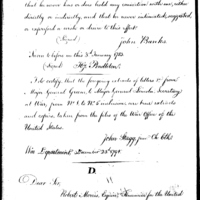 that he never has or does hold any connection with me, either
directly or indirectly, and that he never intimated, suggested,
or expressed a wish or desire to this effect
(Signed) John Banks
Sworn to before me this 3d January 1793
(Signed)
I do certify that the foregoing extracts of letters from
Major General Greene, & Major General Lincoln, Secretary
at War, from No. to No. 6 inclusive, are true extracts
and copies, taken from the files of the War Office of the
United States.
John Stagg, jun. Ch. Clk.
War Department December 24th 1791.
D.
Dear Sir,
Robert Morris, Esquire, Financier for the United